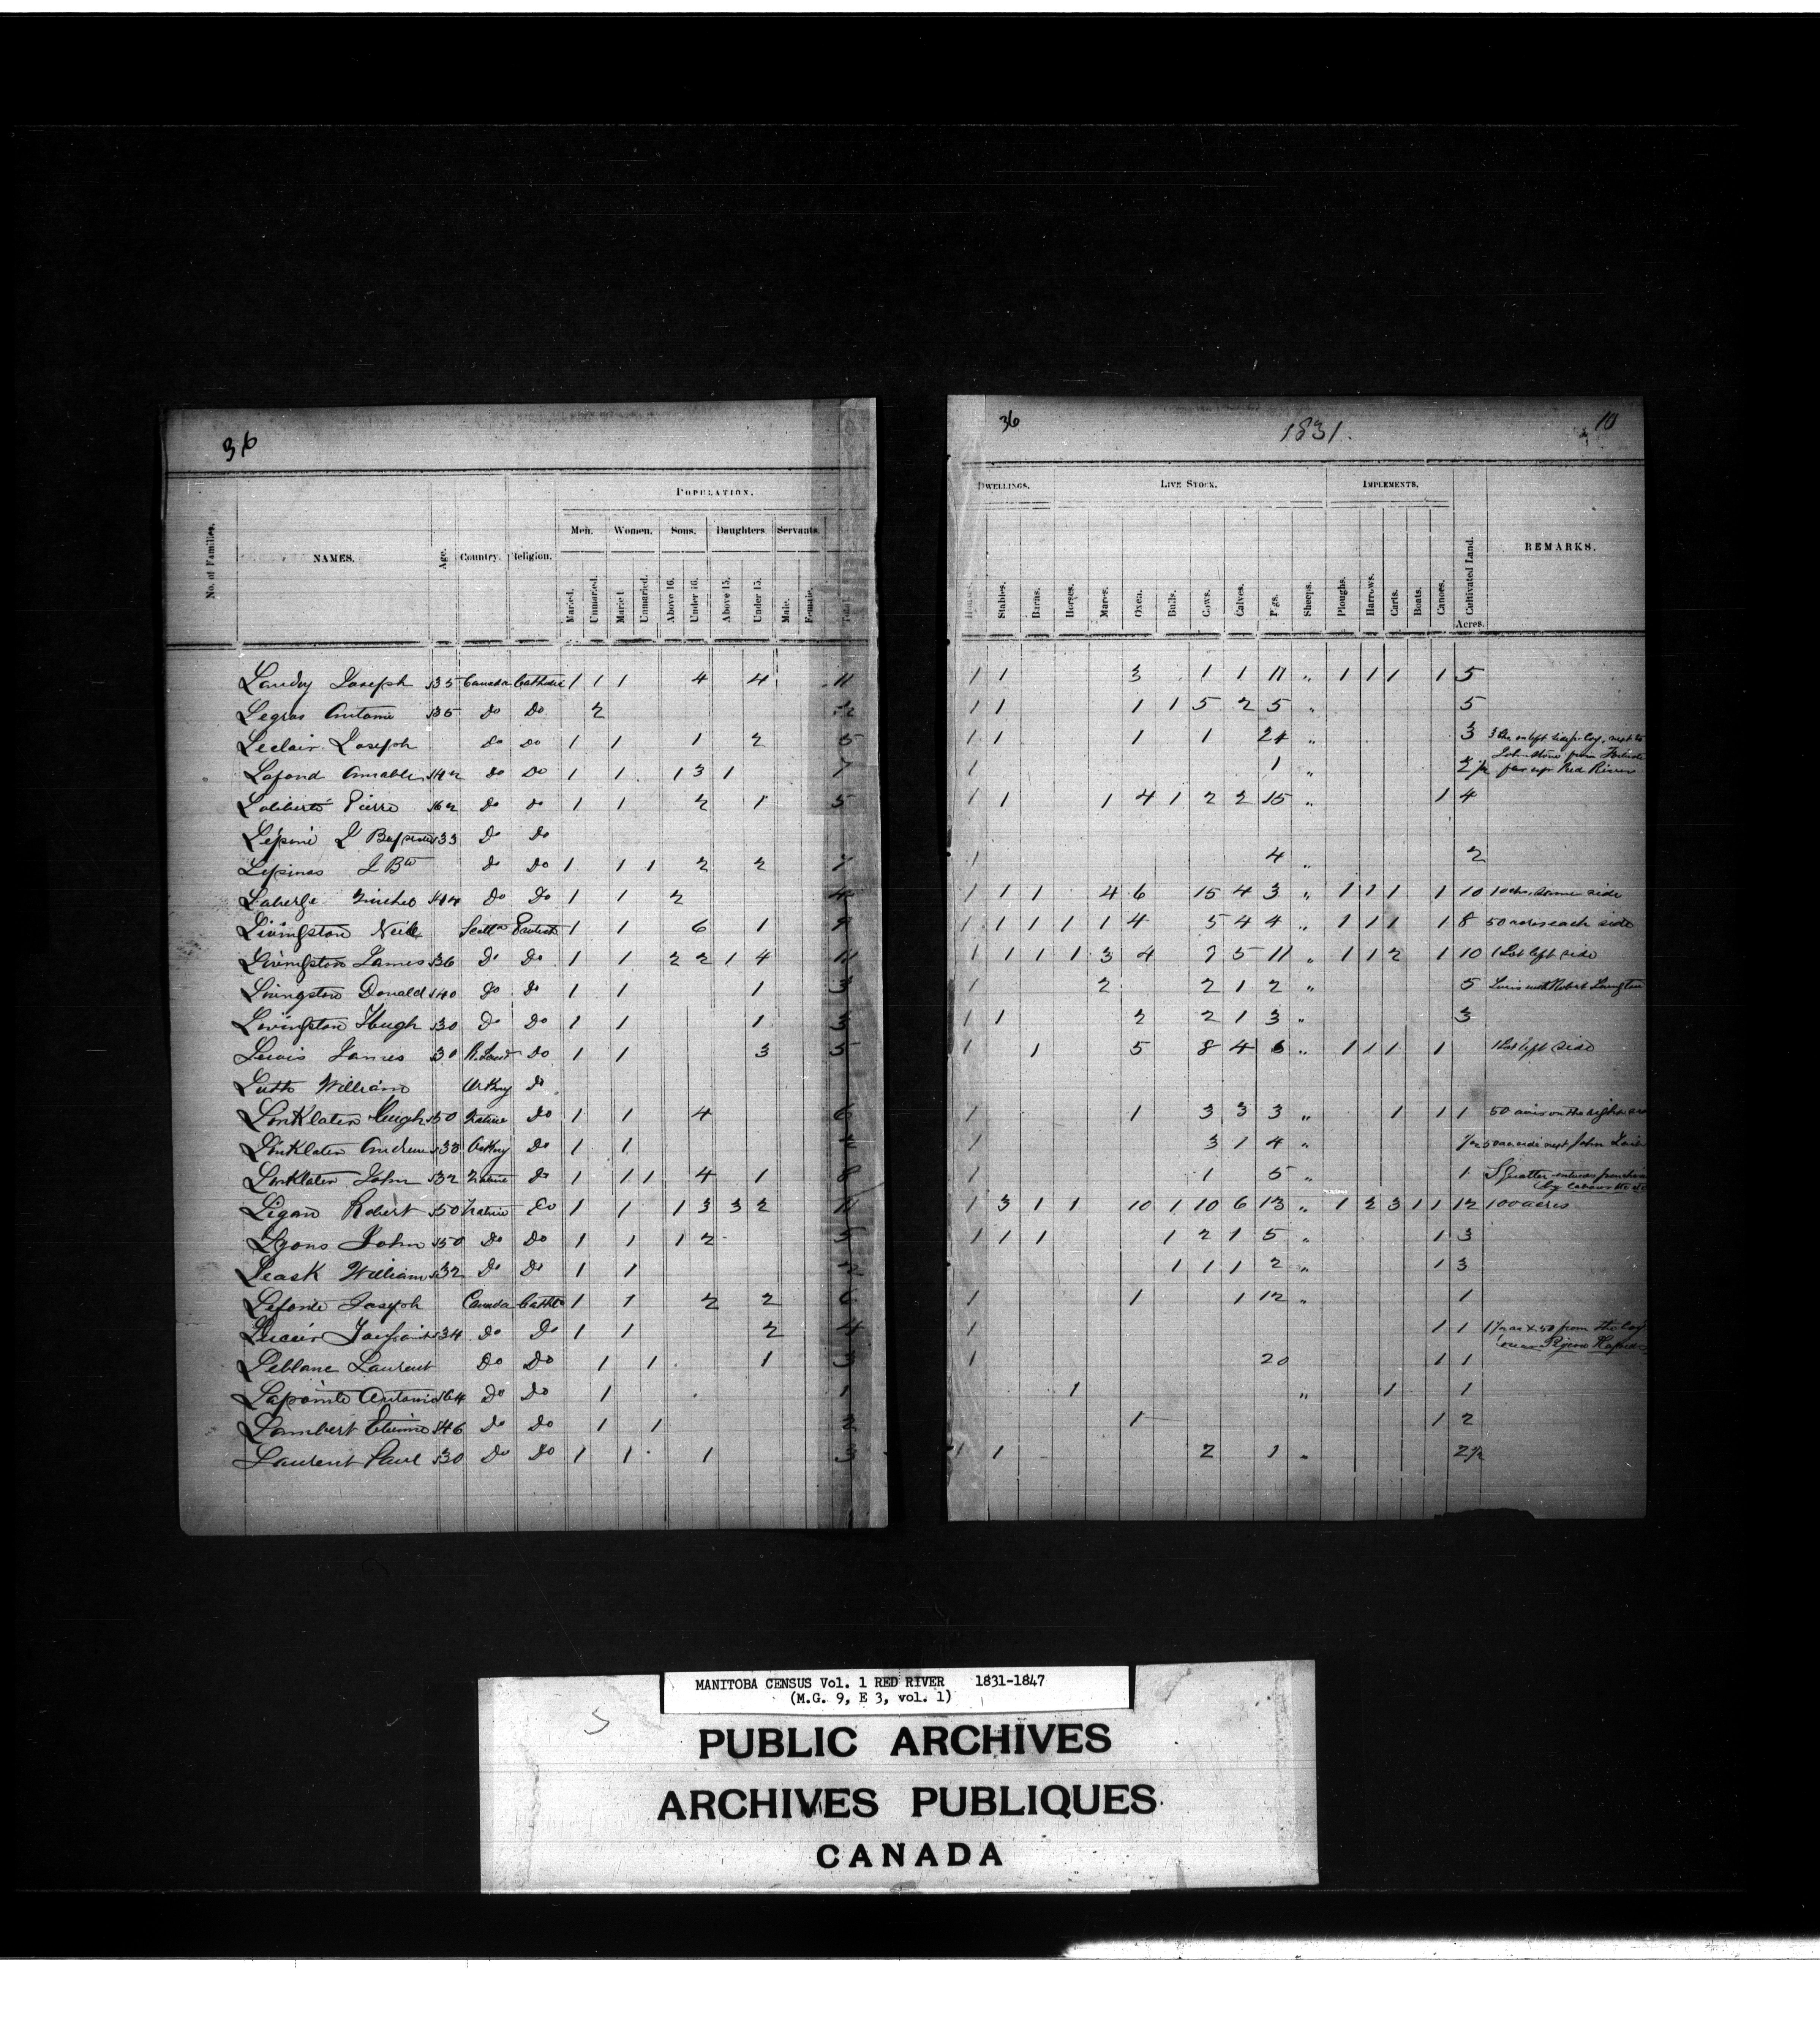 36
POPULATION.
Men. Women. Sons. Daughters. Servants.
No. of Families. NAMES. Age. Country. Religion. Married. Unmarried. Married. Unmarried. Above 16. Under 16. Above 15. Under 15. Male. Female. Total
Landry Joseph 35 Canada Catholic 1 1 1 4 4 11
Legras Antoine 35 Do Do 2 2
Leclair Joseph Do Do 1 1 1 2 5
Lafond Amable 42 Do Do 1 1 1 3 1 7
Laliberté Pierre 62 Do Do 1 1 2 1 5
Lépine J Baptiste 33 Do Do
Lepinas J Bte Do Do 1 1 1 2 2 7
Laberge 44 Do Do 1 1 2 4
Livingston Neil Scotld Protest 1 1 6 1 9
Livingston James 36 Do Do 1 1 2 2 1 4 11
Livingston Donald 40 Do Do 1 1 1 3
Livingston Hugh 30 Do Do 1 1 1 3
Lewis James 30 R. Land Do 1 1 3 5
William Orkny Do
Linklater Hugh 50 Native Do 1 1 4 6
Linklater Andrew 38 Orkny Do 1 1 2
Linklater John 32 Native Do 1 1 1 4 1 8
Robert 50 Native Do 1 1 1 3 3 2 11
Lyons John 50 Do Do 1 1 1 2 5
Leask William 32 Do Do 1 1 2
Joseph Canada Catho 1 1 2 2 6
34 Do Do 1 1 2 4
Leblanc Laurent Do Do 1 1 1 3
Lapointe Antoine 64 Do Do 1 1
Lambert Etienne 46 Do Do 1 1 2
Laurent Paul 30 Do Do 1 1 1 3
36 1831. 10
DWELLINGS. LIVE STOCK. IMPLEMENTS.
Houses. Stables. Barns. Horses. Mares. Oxen. Bulls. Cows. Calves. Pigs. Sheeps. Ploughs. Harrows. Carts. Boats. Canoes. Cultivated Land. REMARKS.
Acres.
1 1 3 1 1 11 „ 1 1 1 1 5
1 1 1 1 5 2 5 „ 5
1 1 1 1 24 3 3 on left next to
1 1 „ 2 1/2 Red River
1 1 1 4 1 2 2 15 „ 1 4
1 4 „ 2
1 1 1 4 6 15 4 3 „ 1 1 1 1 10 10 chs. same side
1 1 1 1 1 4 5 4 4 „ 1 1 1 1 8 50 acres each side
1 1 1 1 3 4 9 5 11 „ 1 1 2 1 10 1 Lot left side
1 2 2 1 2 „ 5 Lives with Robert
1 1 2 2 1 3 „ 3
1 1 5 8 4 6 „ 1 1 1 1 1 Lot left side
1 1 3 3 3 „ 1 1 1 50 acres on the right
1 3 1 4 „ 1/2 50 next John
1 1 5 „ 1 Squatter
1 3 1 1 10 1 10 6 13 „ 1 2 3 1 1 12 100 acres
1 1 1 1 2 1 5 „ 1 3
1 1 1 2 „ 1 3
1 1 1 12 „ 1
1 1 1 50 from the
1 20 1 1
1 „ 1 1
1 1 2
1 1 2 1 „ 2 1/2
MANITOBA CENSUS Vol. 1 RED RIVER 1831-1847
(M.G. 9, E 3, vol. 1)
PUBLIC ARCHIVES
ARCHIVES PUBLIQUES
CANADA